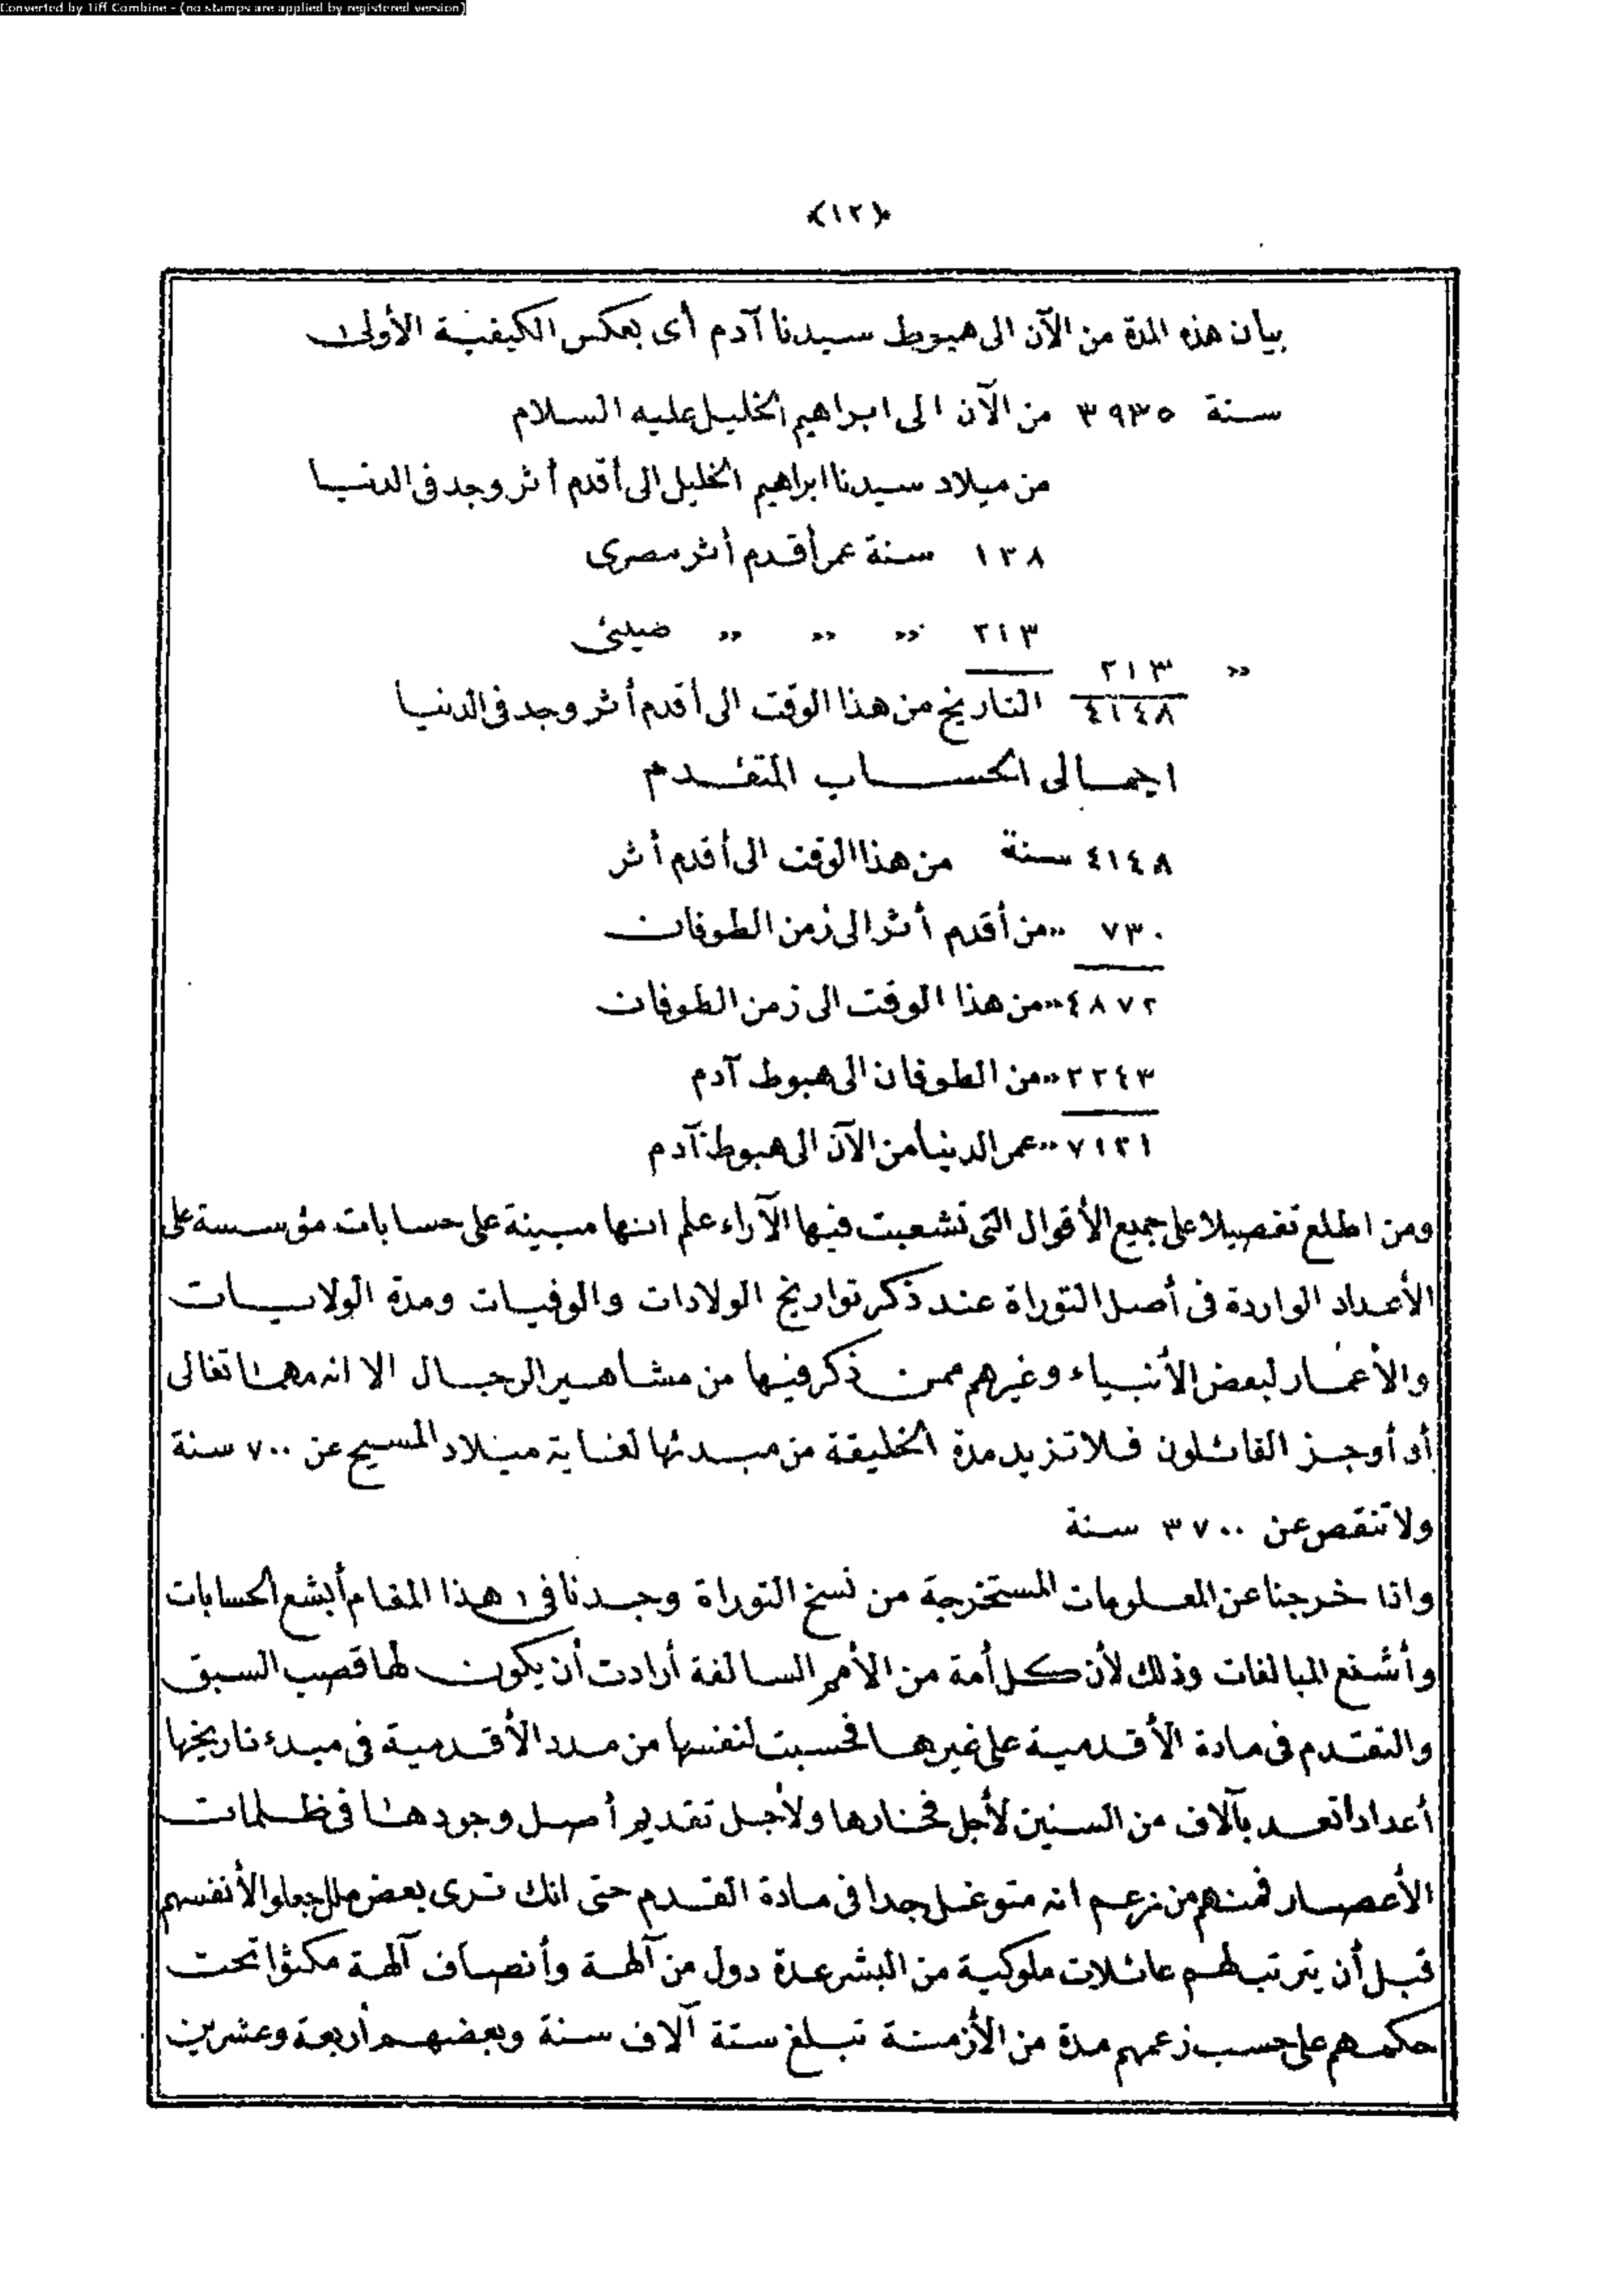 Converted by Tiff Combine - (no stamps are applied by registered version)
﴿١٢﴾
بيان هذه المدة من الآن الى هبوط سيدنا آدم أى بعكس الكيفية الأولى
سنة ٣٩٣٥ من الآن الى ابراهيم الخليل عليه السلام
من ميلاد سيدنا ابراهيم الخليل الى أقدم أثر وجد فى الدنيا
١٣٨ سنة عمر أقدم أثر مصرى
٢١٣ » » » » صينى
» ٢١٣
٤١٤٨ التاريخ من هذا الوقت الى أقدم أثر وجد فى الدنيا
اجمالى الحساب المتقدم
٤١٤٨ سنة من هذا الوقت الى أقدم أثر
٧٣٠ » من أقدم أثر الى زمن الطوفان
٤٨٧٢ » من هذا الوقت الى زمن الطوفان
٢٢٤٣ » من الطوفان الى هبوط آدم
٧١٢١ » عمر الدنيا من الآن الى هبوط آدم
ومن اطلع تفصيلا على جميع الأقوال التى تشعبت فيها الآراء علم انها مبينة على حسابات مؤسسة على
الأعداد الواردة فى أصل التوراة عند ذكر تواريخ الولادات والوفيات ومدة الولايات
والأعمار لبعض الأنبياء وغيرهم ممن ذكر فيها من مشاهير الرجال الا انه مهما تغالى
أو أوجز القائلون فلا تزيد مدة الخليقة من مبدئها لغاية ميلاد المسيح عن ٧٠٠ سنة
ولا تنقص عن ٣٧٠٠ سنة
واذا خرجنا عن المعلومات المستخرجة من نسخ التوراة وجدنا فى هذا المقام أبشع الحسابات
وأشنع المبالغات وذلك لأن كل أمة من الأمم السالفة أرادت أن يكون لها قصب السبق
والتقدم فى مادة الأقدمية على غيرها فحسبت لنفسها من مدد الأقدمية فى مبدء تاريخها
أعدادا تعد بآلاف من السنين لأجل فخارها ولأجل تقدير أصل وجودها فى ظلمات
الأعصار فمنهم من زعم انه متوغل جدا فى مادة القدم حتى انك ترى بعض ملل جعلوا لأنفسهم
قبل أن يترتب لهم عائلات ملوكية من البشر عدة دول من آلهة وأنصاف آلهة مكثوا تحت
حكمهم على حسب زعمهم مدة من الأزمنة تبلغ ستة آلاف سنة وبعضهم أربعة وعشرين